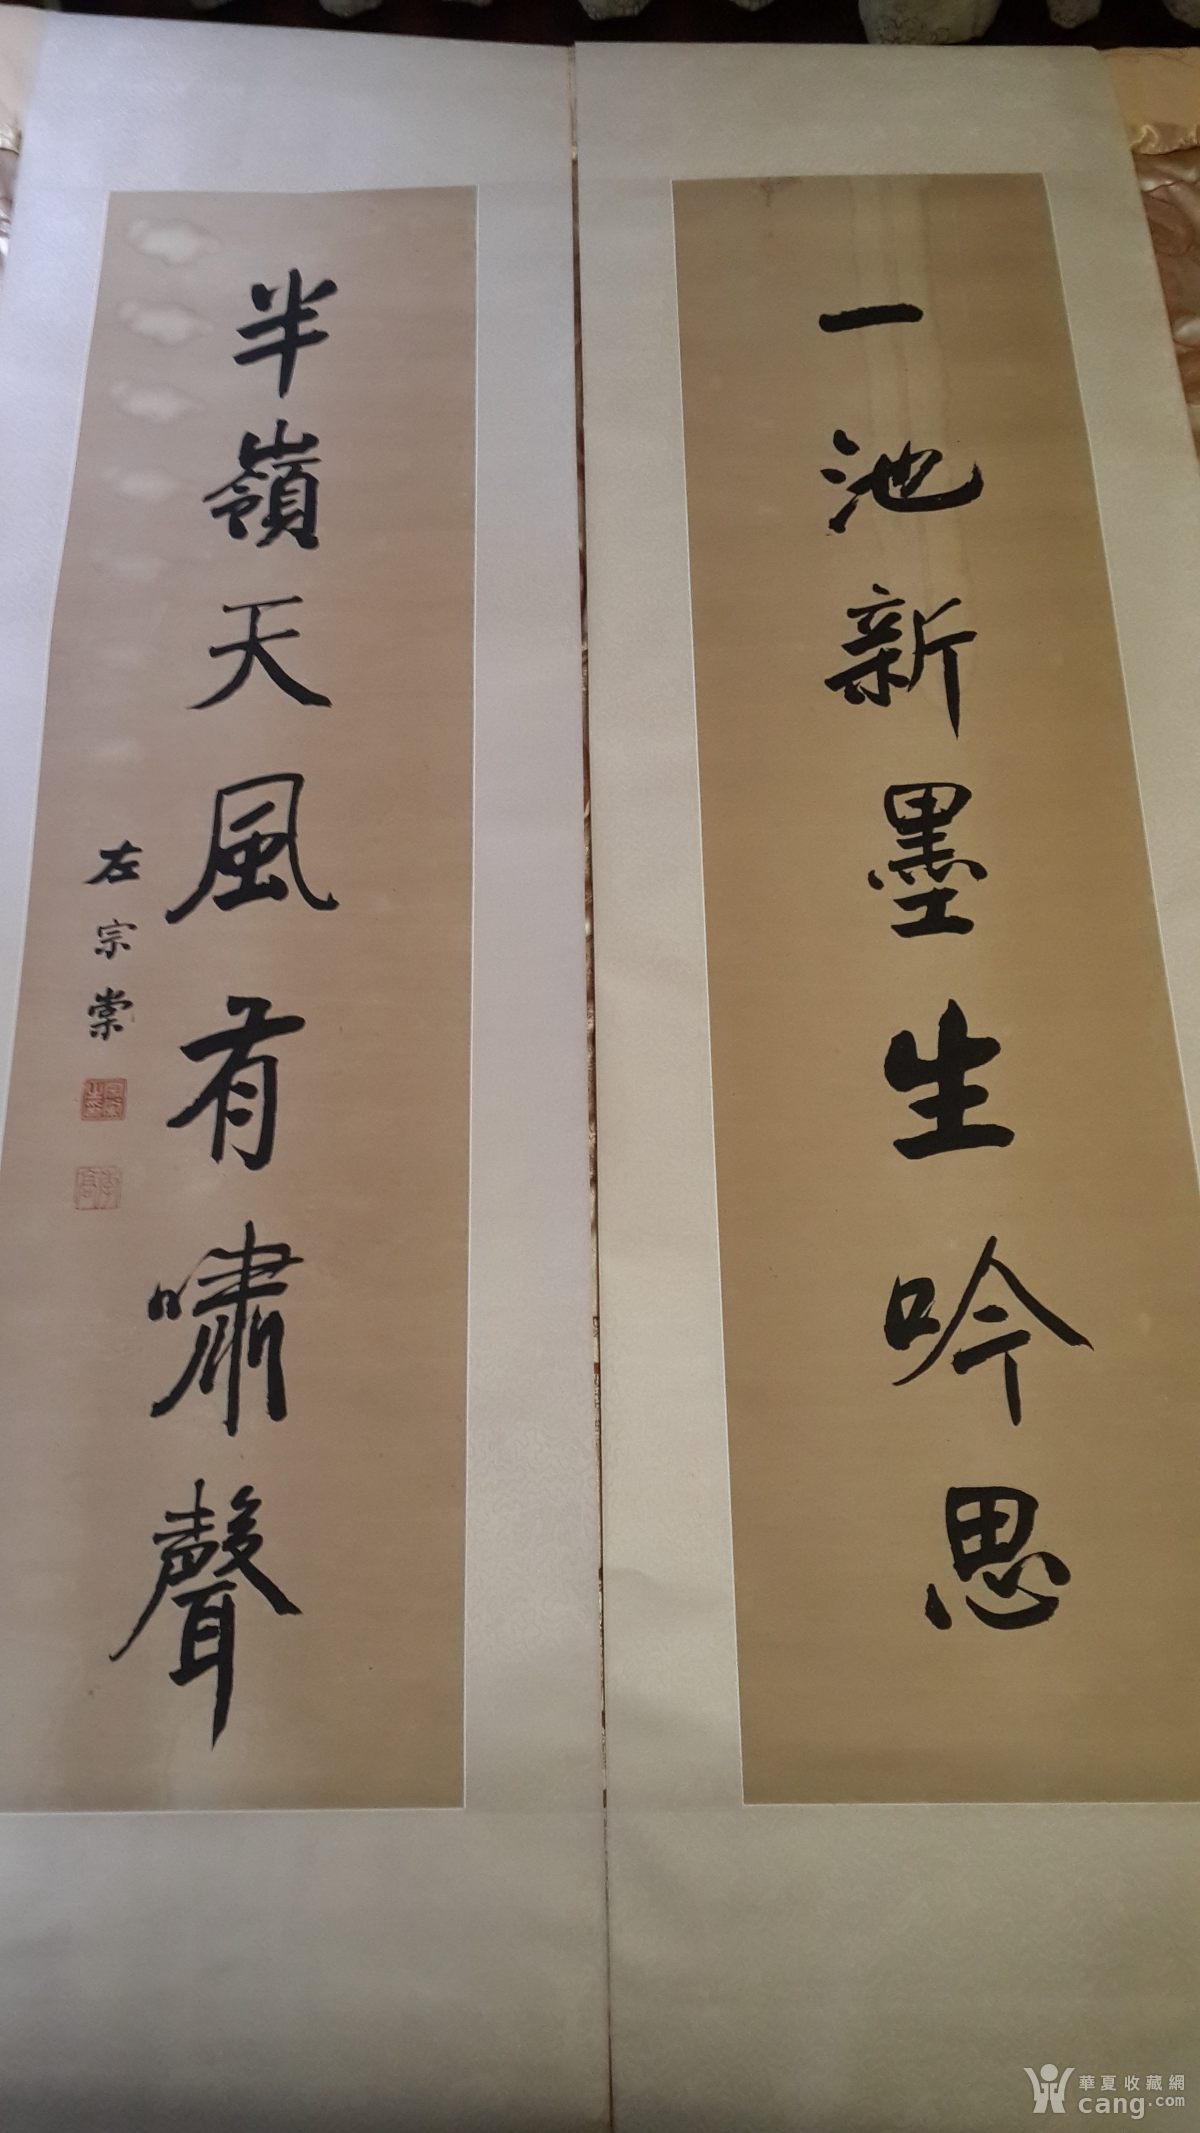 一池新墨生吟思
半嶺天風有嘯聲
左宗棠
華夏收藏網
cang.com